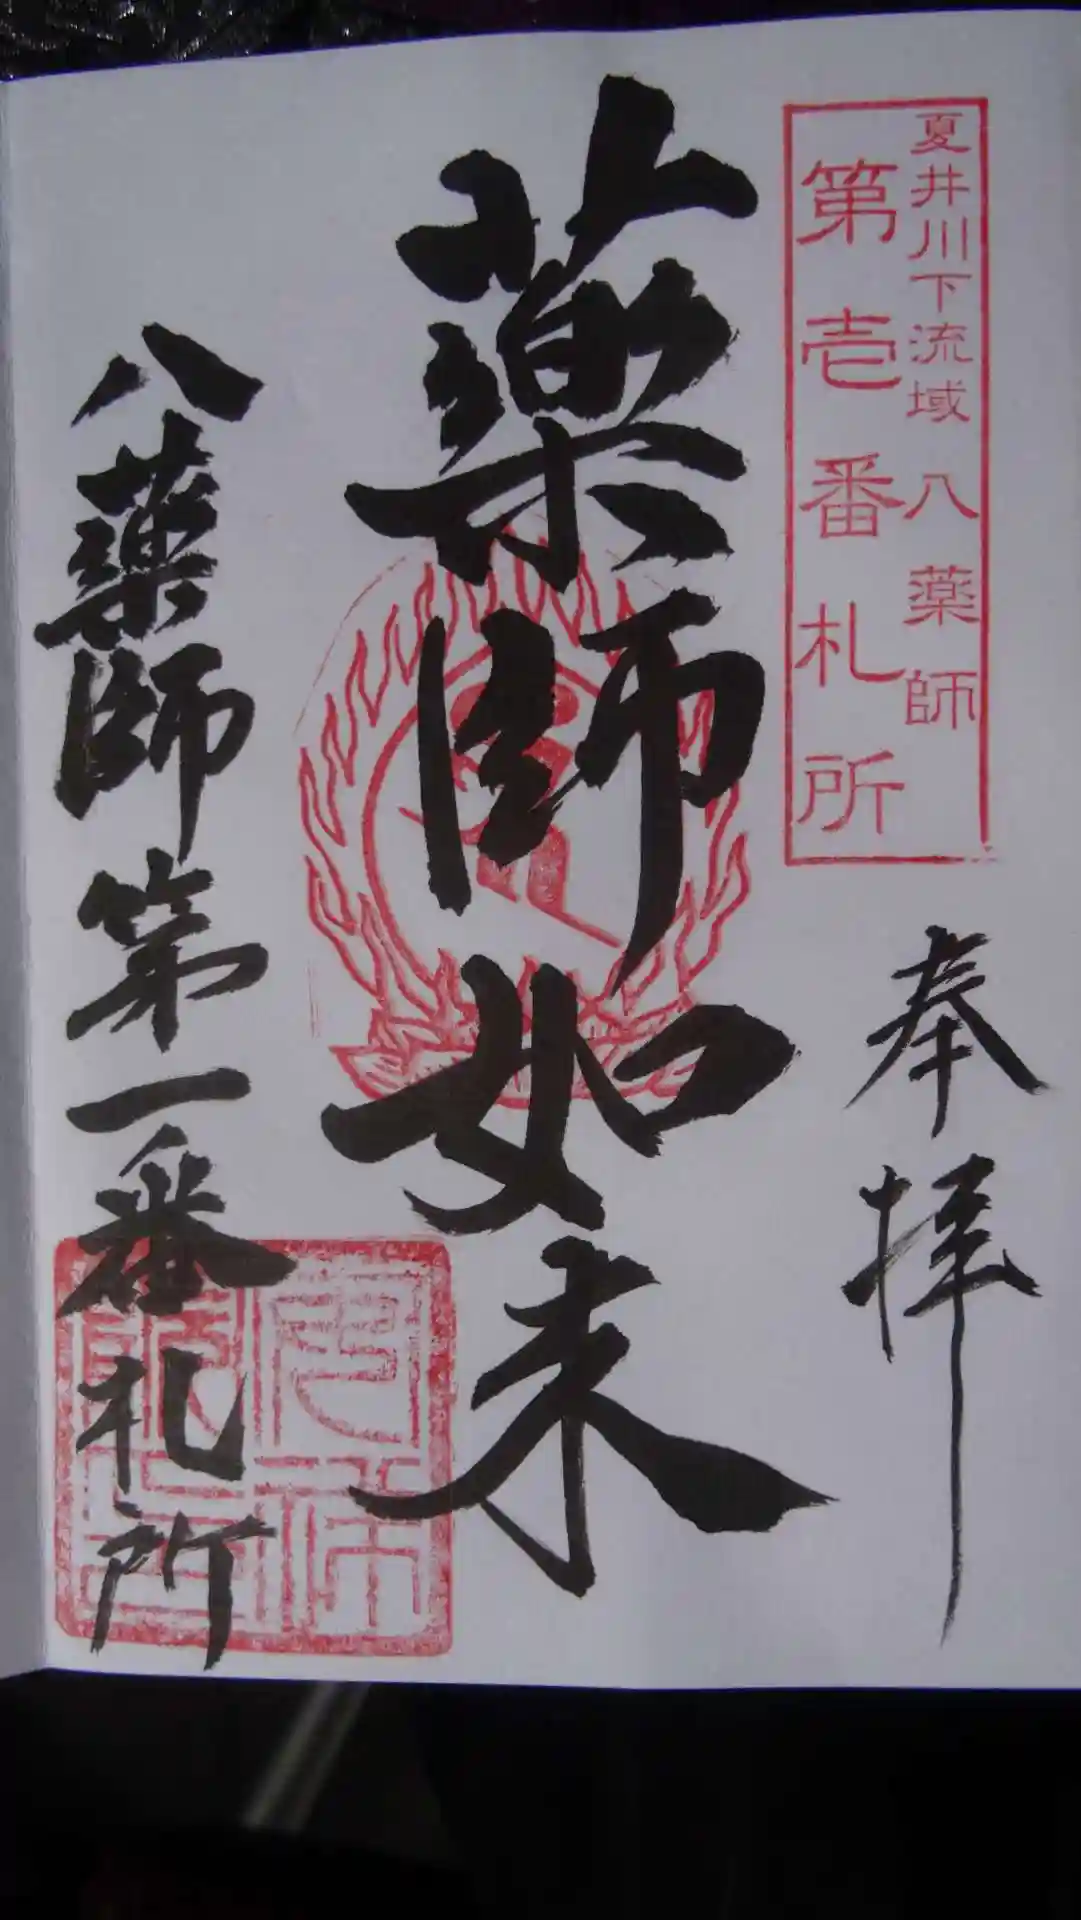 夏井川下流域 八薬師
第壱番札所
奉拝
藥師如来
八藥師第一番札所